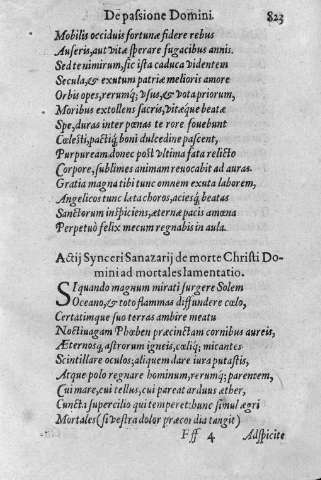 De passione Domini. 823
Mobilis occiduis fortunæ fidere rebus
Auferis, aut vitæ sperare fugacibus annis.
Sed te nimirum, sic ista caduca videntem
Secula, & exutum patriæ melioris amore
Orbis opes, rerumq; vsus, & vota priorum,
Moribus extollens sacris, vitæque beatæ
Spe, duras inter pœnas te rore fouebunt
Cœlesti, pactiq; boni dulcedine pascent,
Purpuream donec post vltima fata relicto
Corpore, sublimes animam reuocabit ad auras.
Gratia magna tibi tunc omnem exuta laborem,
Angelicos tunc læta choros, aciesq; beatas
Sanctorum inspiciens, æternæ pacis amœna
Perpetuò felix mecum regnabis in aula.
Actij Synceri Sanazarij de morte Christi Do-
mini ad mortales lamentatio.
SI quando magnum mirati surgere Solem
Oceano, & toto flammas diffundere cœlo,
Certatimque suo terras ambire meatu
Noctiuagam Phœben præcinctam cornibus aureis,
Æternosq; astrorum igneis, cœliq; micantes
Scintillare oculos; aliquem dare iura putastis,
Atque polo regnare hominum, rerumq; parentem,
Cui mare, cui tellus, cui pareat arduus æther,
Cuncta supercilio qui temperet: hunc simul ægri
Mortales (si vestra dolor præcordia tangit)
Fff 4 Adspicite